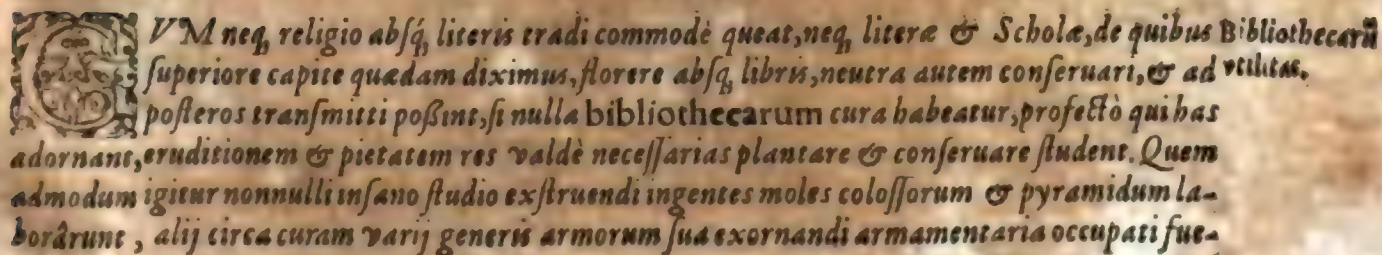 CVM neq; religio absq́; literis tradi commodè queat, neq; literæ & Scholæ, de quibus
superiore capite quædam diximus, florere absq; libris, neutra autem conseruari, & ad
posteros transmitti poßint, si nulla bibliothecarum cura habeatur, profectò qui has
adornant, eruditionem & pietatem res valdè necessarias plantare & conseruare student. Quem
admodum igitur nonnulli insano studio exstruendi ingentes moles colossorum & pyramidum la-
borârunt, alij circa curam varij generis armorum sua exornandi armamentaria occupati fue-
Bibliothecarũ
vtilitas.